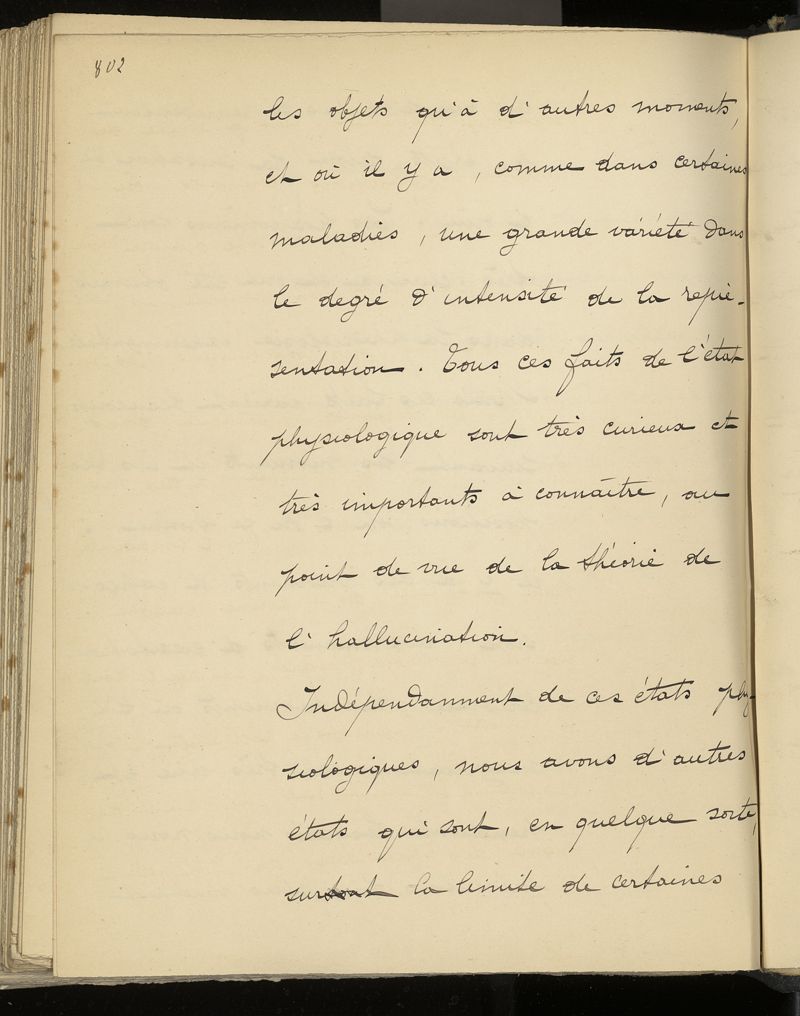 802
les objets qu'à d'autres moments,
et où il y a, comme dans certaines
maladies, une grande variété dans
le degré d'intensité de la repré-
sentation. Tous ces faits de l'état
physiologique sont très curieux et
très importants à connaître, au
point de vue de la théorie de
l'hallucination.
Indépendamment de ces états phy-
siologiques, nous avons d'autres
états qui sont, en quelque sorte,
surtout la limite de certaines